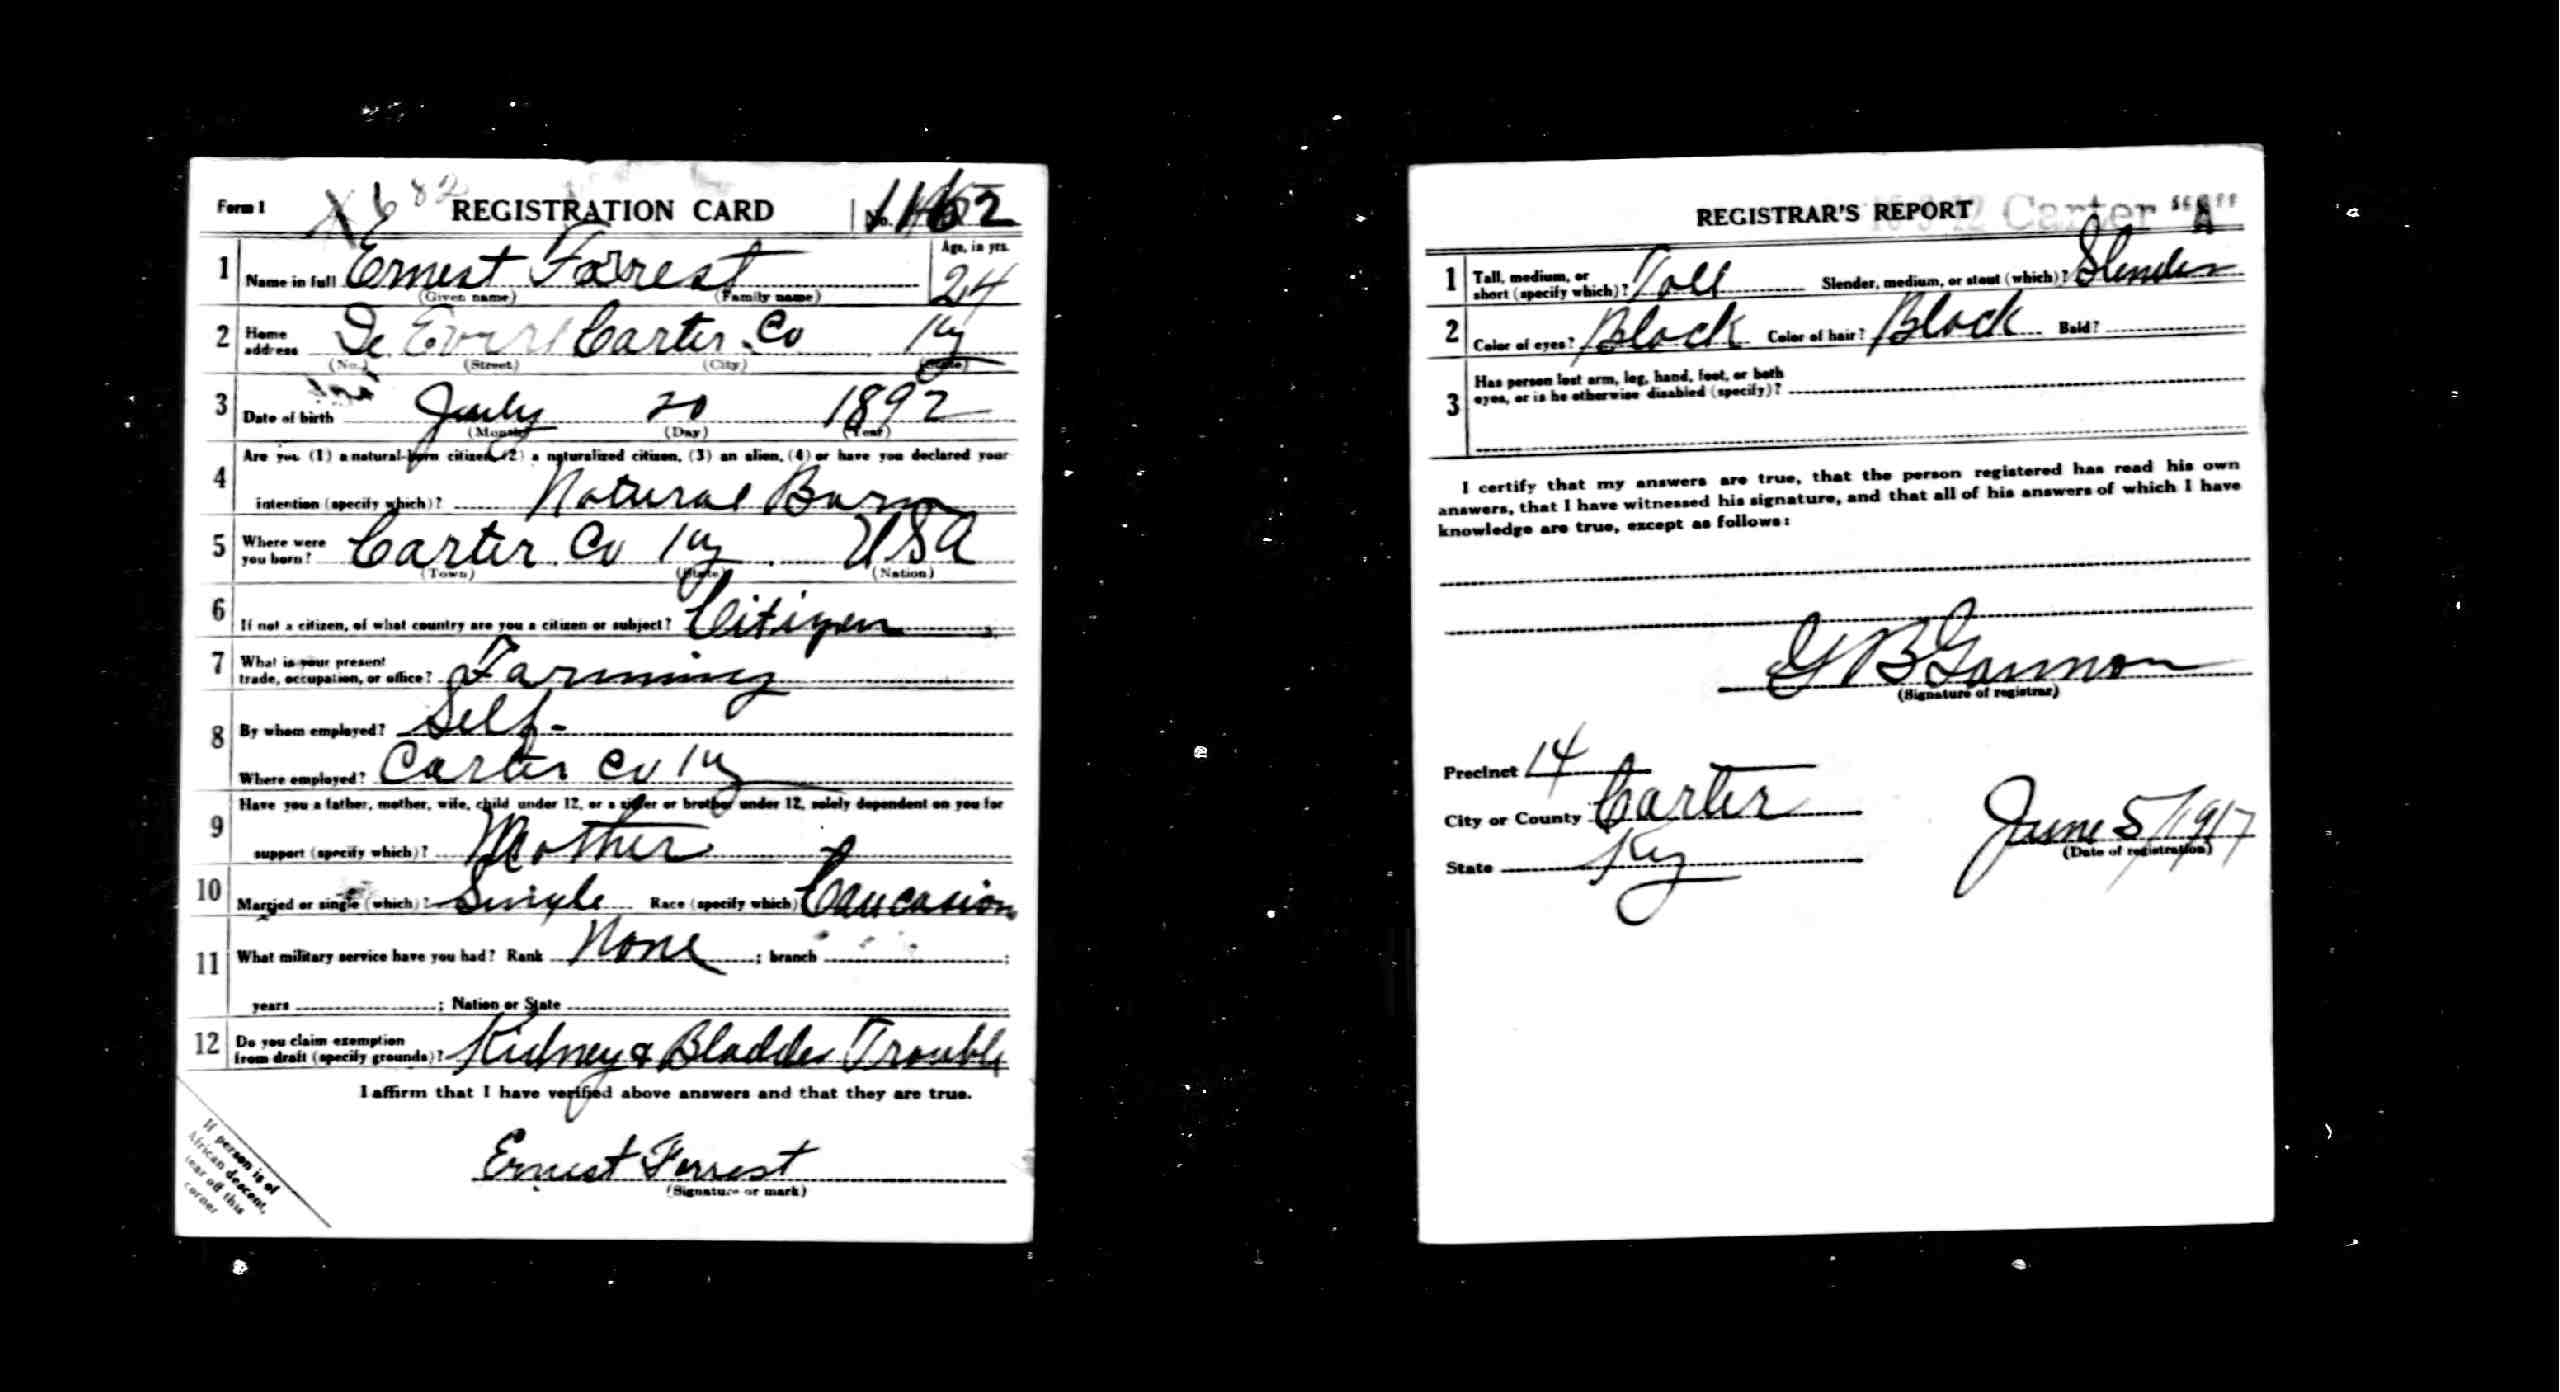 Form 1 82 REGISTRATION CARD No.
1 Name in full Ernest Forrest Age, in yrs. 24
(Given name) (Family name)
2 Home address De Evert Carter Co Ky
(No.) (Street) (City) (State)
3 Date of birth July 20 1892
(Month) (Day) (Year)
Are you (1) a natural-born citizen, (2) a naturalized citizen, (3) an alien, (4) or have you declared your
4 intention (specify which)? Natural Born
5 Where were you born? Carter Co Ky USA
(Town) (State) (Nation)
6 If not a citizen, of what country are you a citizen or subject? Citizen
7 What is your present
trade, occupation, or office? Farming
8 By whom employed? Self-
Where employed? Carter Co Ky
9 Have you a father, mother, wife, child under 12, or a sister or brother under 12, solely dependent on you for
support (specify which)? Mother
10 Married or single (which)? Single Race (specify which) Caucasion
11 What military service have you had? Rank None ; branch ;
years ; Nation or State
12 Do you claim exemption
from draft (specify grounds)? Kidney & Bladder Trouble
I affirm that I have verified above answers and that they are true.
Ernest Forrest
(Signature or mark)
If person is of
African descent,
tear off this
corner
REGISTRAR'S REPORT Carter "A"
1 Tall, medium, or
short (specify which)? Tall Slender, medium, or stout (which)? Slender
2 Color of eyes? Black Color of hair? Black Bald?
3 Has person lost arm, leg, hand, foot, or both
eyes, or is he otherwise disabled (specify)?
I certify that my answers are true, that the person registered has read his own
answers, that I have witnessed his signature, and that all of his answers of which I have
knowledge are true, except as follows:
G B Gannon
(Signature of registrar)
Precinct 14
City or County Carter
State Ky
June 5/1917
(Date of registration)